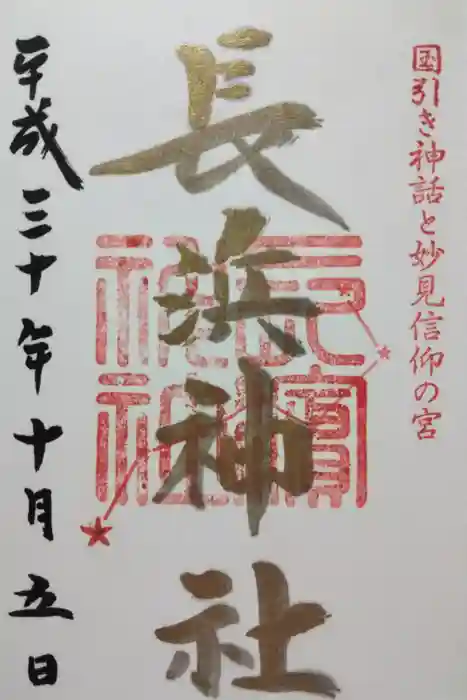 国引き神話と妙見信仰の宮
長浜神社
平成三十年十月五日